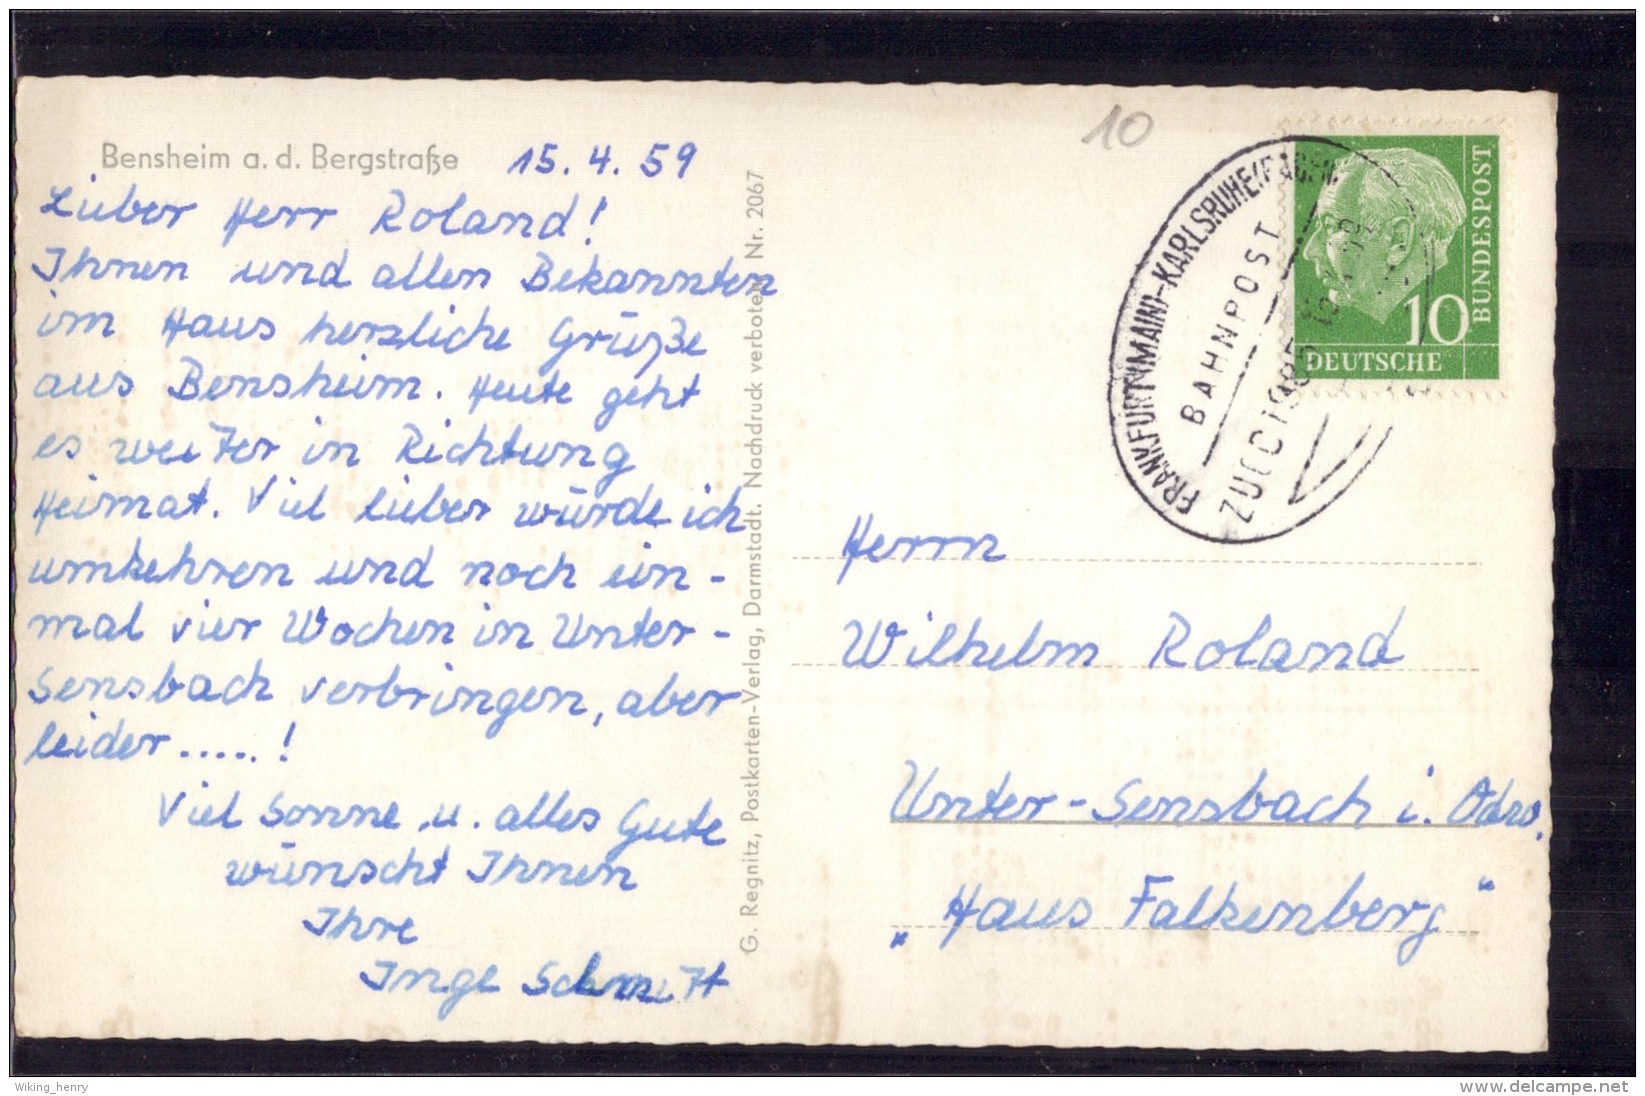 Bensheim a. d. Bergstraße 15. 4. 59
Lieber Herr Roland!
Ihnen und allen Bekannten
im Haus herzliche Grüße
aus Bensheim. Heute geht
es weiter in Richtung
Heimat. Viel lieber würde ich
umkehren und noch ein-
mal vier Wochen in Unter-
Sensbach verbringen, aber
leider.....!
Viel Sonne u. alles Gute
wünscht Ihnen
Ihre
Inge Schmitt
G. Regnitz, Postkarten-Verlag, Darmstadt. Nachdruck verboten. Nr. 2067
10
FRANKFURT(MAIN)-KARLSRUHE(BADEN)
BAHNPOST
ZUG
DEUTSCHE
BUNDESPOST
10
Herrn
Wilhelm Roland
Unter-Sensbach i. Odw.
„Haus Falkenberg"
Wiking_henry
www.delcampe.net